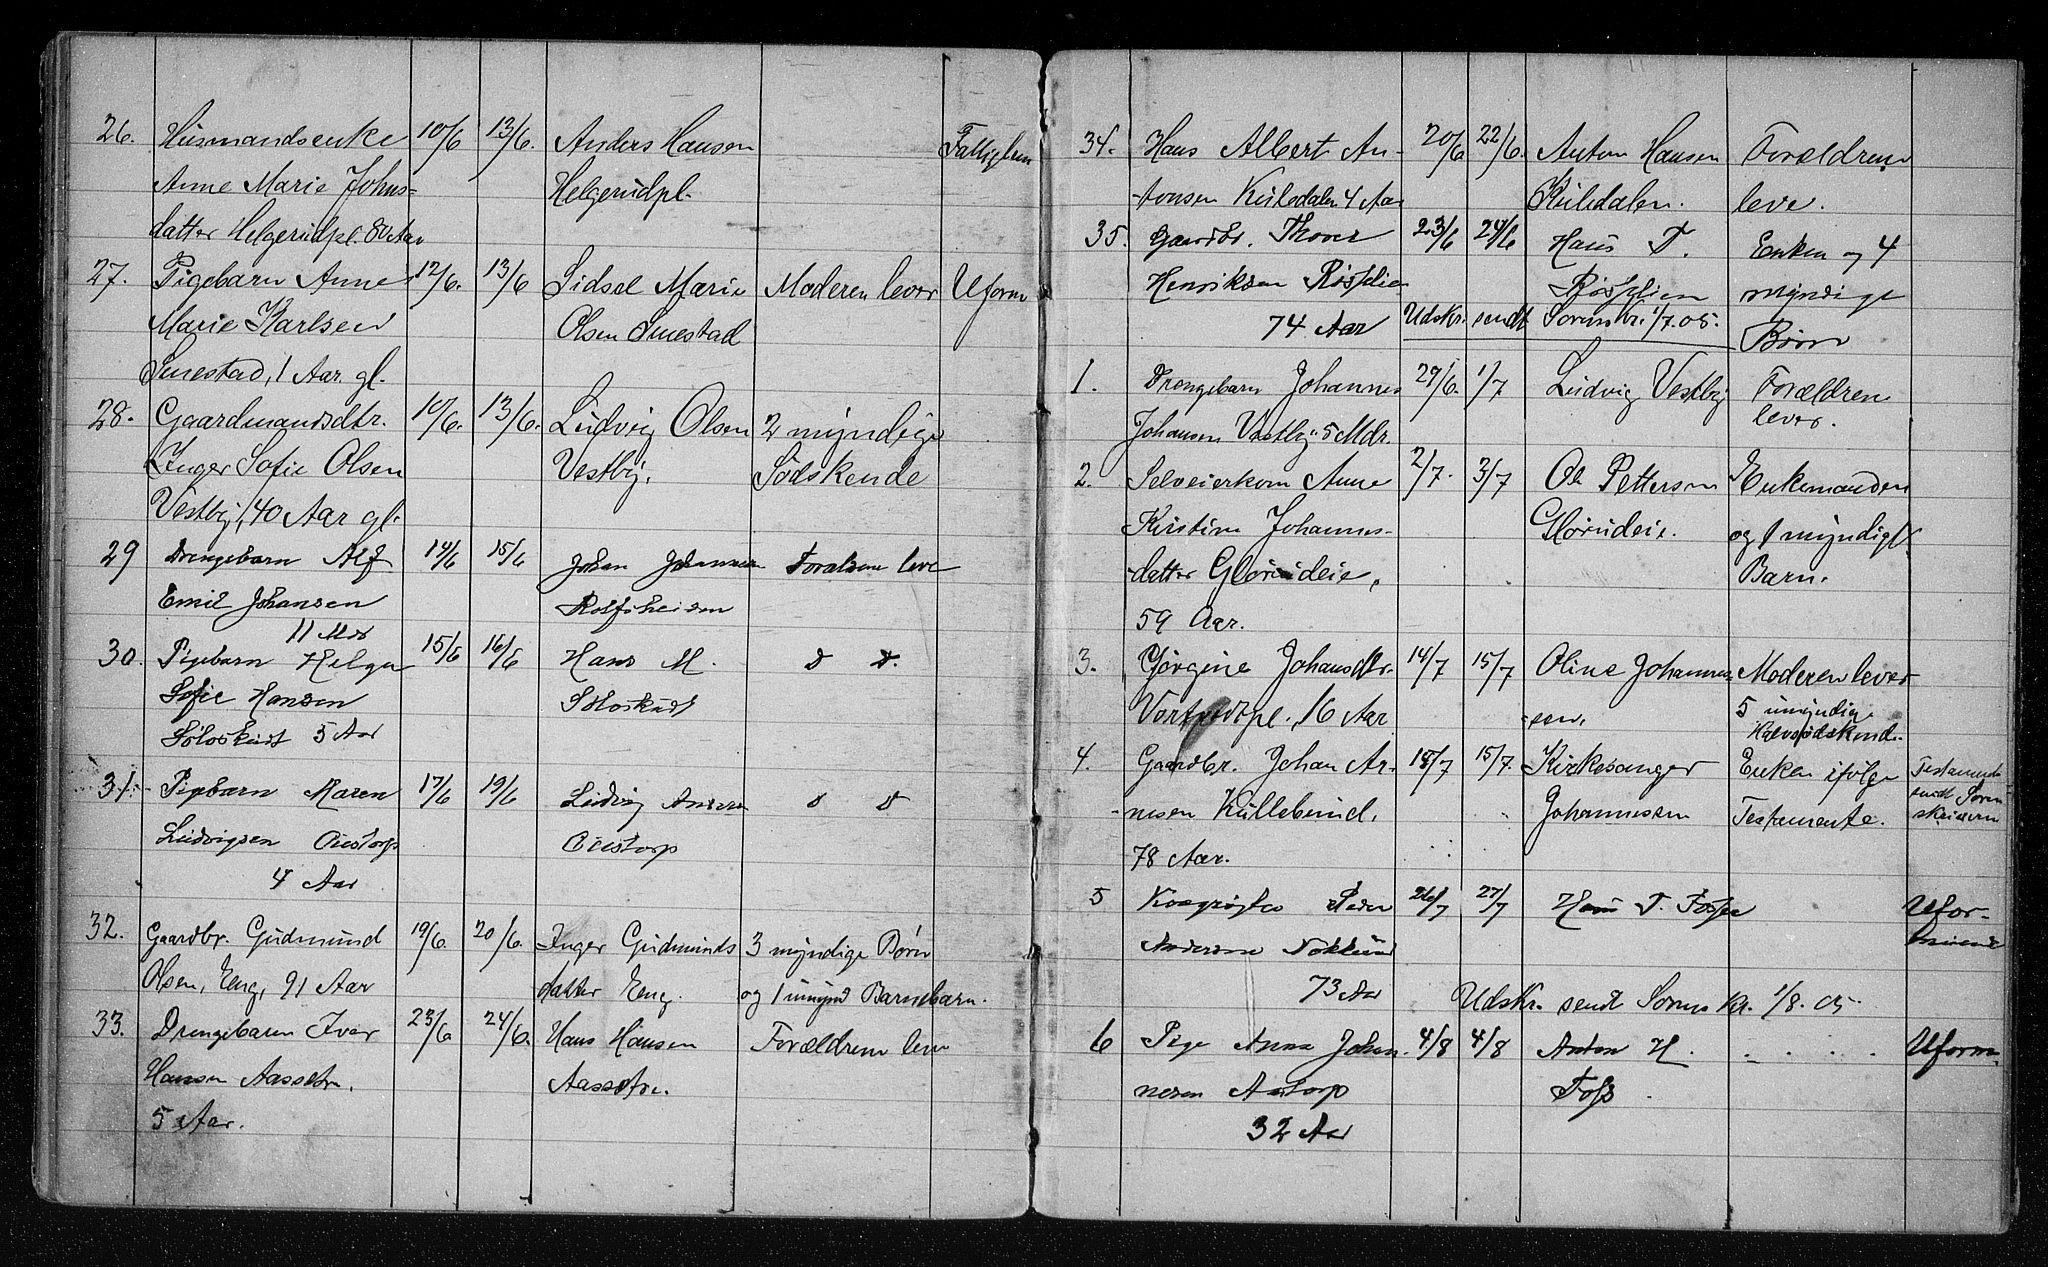 26. Husmandsenke 10/6 13/6. Anders Hansen
Anne Marie Johns- Helgerudpl.
datter Helgerudpl. 80 Aar
27. Pigebarn Anne 12/6. 13/6 Sidsel Marie Moderen lever Uform
Marie Karlsen Olsen Smestad
Smestad, 1 Aar gl.
28. Gaardmandsdtr. 10/6. 13/6. Ludvig Olsen 2 myndige
Inger Sofie Olsen Vestby. Sødskende
Vestby, 40 Aar gl.
29 Drengebarn Alf 14/6 15/6 Johan Johannesen leve
Emil Johansen
11 Mdr
30. Pigebarn Helga 15/6 16/6 Hans M. D D.
Sofie Hansen
5 Aar
31. Pigebarn Maren 17/6 19/6 Ludvig D D
Ludvigsen Oustorp Oustorp
4 Aar
32. Gaardbr. Gudmund 19/6. 20/6. Inger Gudmunds 3 myndige Børn
Olsen, Eng, 91 Aar datter Eng. og 1 umynd Barnebarn.
33. Drengebarn Ivar 23/6 24/6. Hans Hansen Forældrene leve
Hansen Aassetre. Aassetre.
5 Aar.
34. Hans Albert An- 20/6 22/6. Anton Hansen Forældrene
tonsen Kulsdalen 4 Aar Kulsdalen. leve.
35. Gaardbr. Thover 23/6 24/6 Hans T. Enken og 4
Henriksen myndige
74 Aar Udskr. sendt Sorenskr. 1/7.05. Børn
1. Drengebarn Johannes 29/6. 1/7 Ludvig Vestby Forældrene
Johansen Vestby 5 Mdr. lever.
2. Selveierkone Anne 2/7. 3/7 Ole Pettersen Enkemanden
Kristine Johannes- Glørudeie. og 1 myndigt
datter Glørudeie, Barn.
59 Aar.
3. Jørgine Johansdtr. 14/7 15/7 Oline Johannes- Moderen lever
16 Aar sen. 5 umyndige
Halvsødskend.
4. Gaardbr. Johan Ar- 15/7. Kirkesanger Enken ifølge Testament
nesen Kullebund. Johannessen Testamente. sendt Soren
78 Aar. skriveren
5 Peder 26/7 27/7 T. Foss Ufor-
Andersen muende
73 Aar Udskr. sendt Sorenskr. 1/8.05.
6 Pige Anna Johan- 4/8 4/8 Anton H. Uform.
nesen Foss
32 Aar